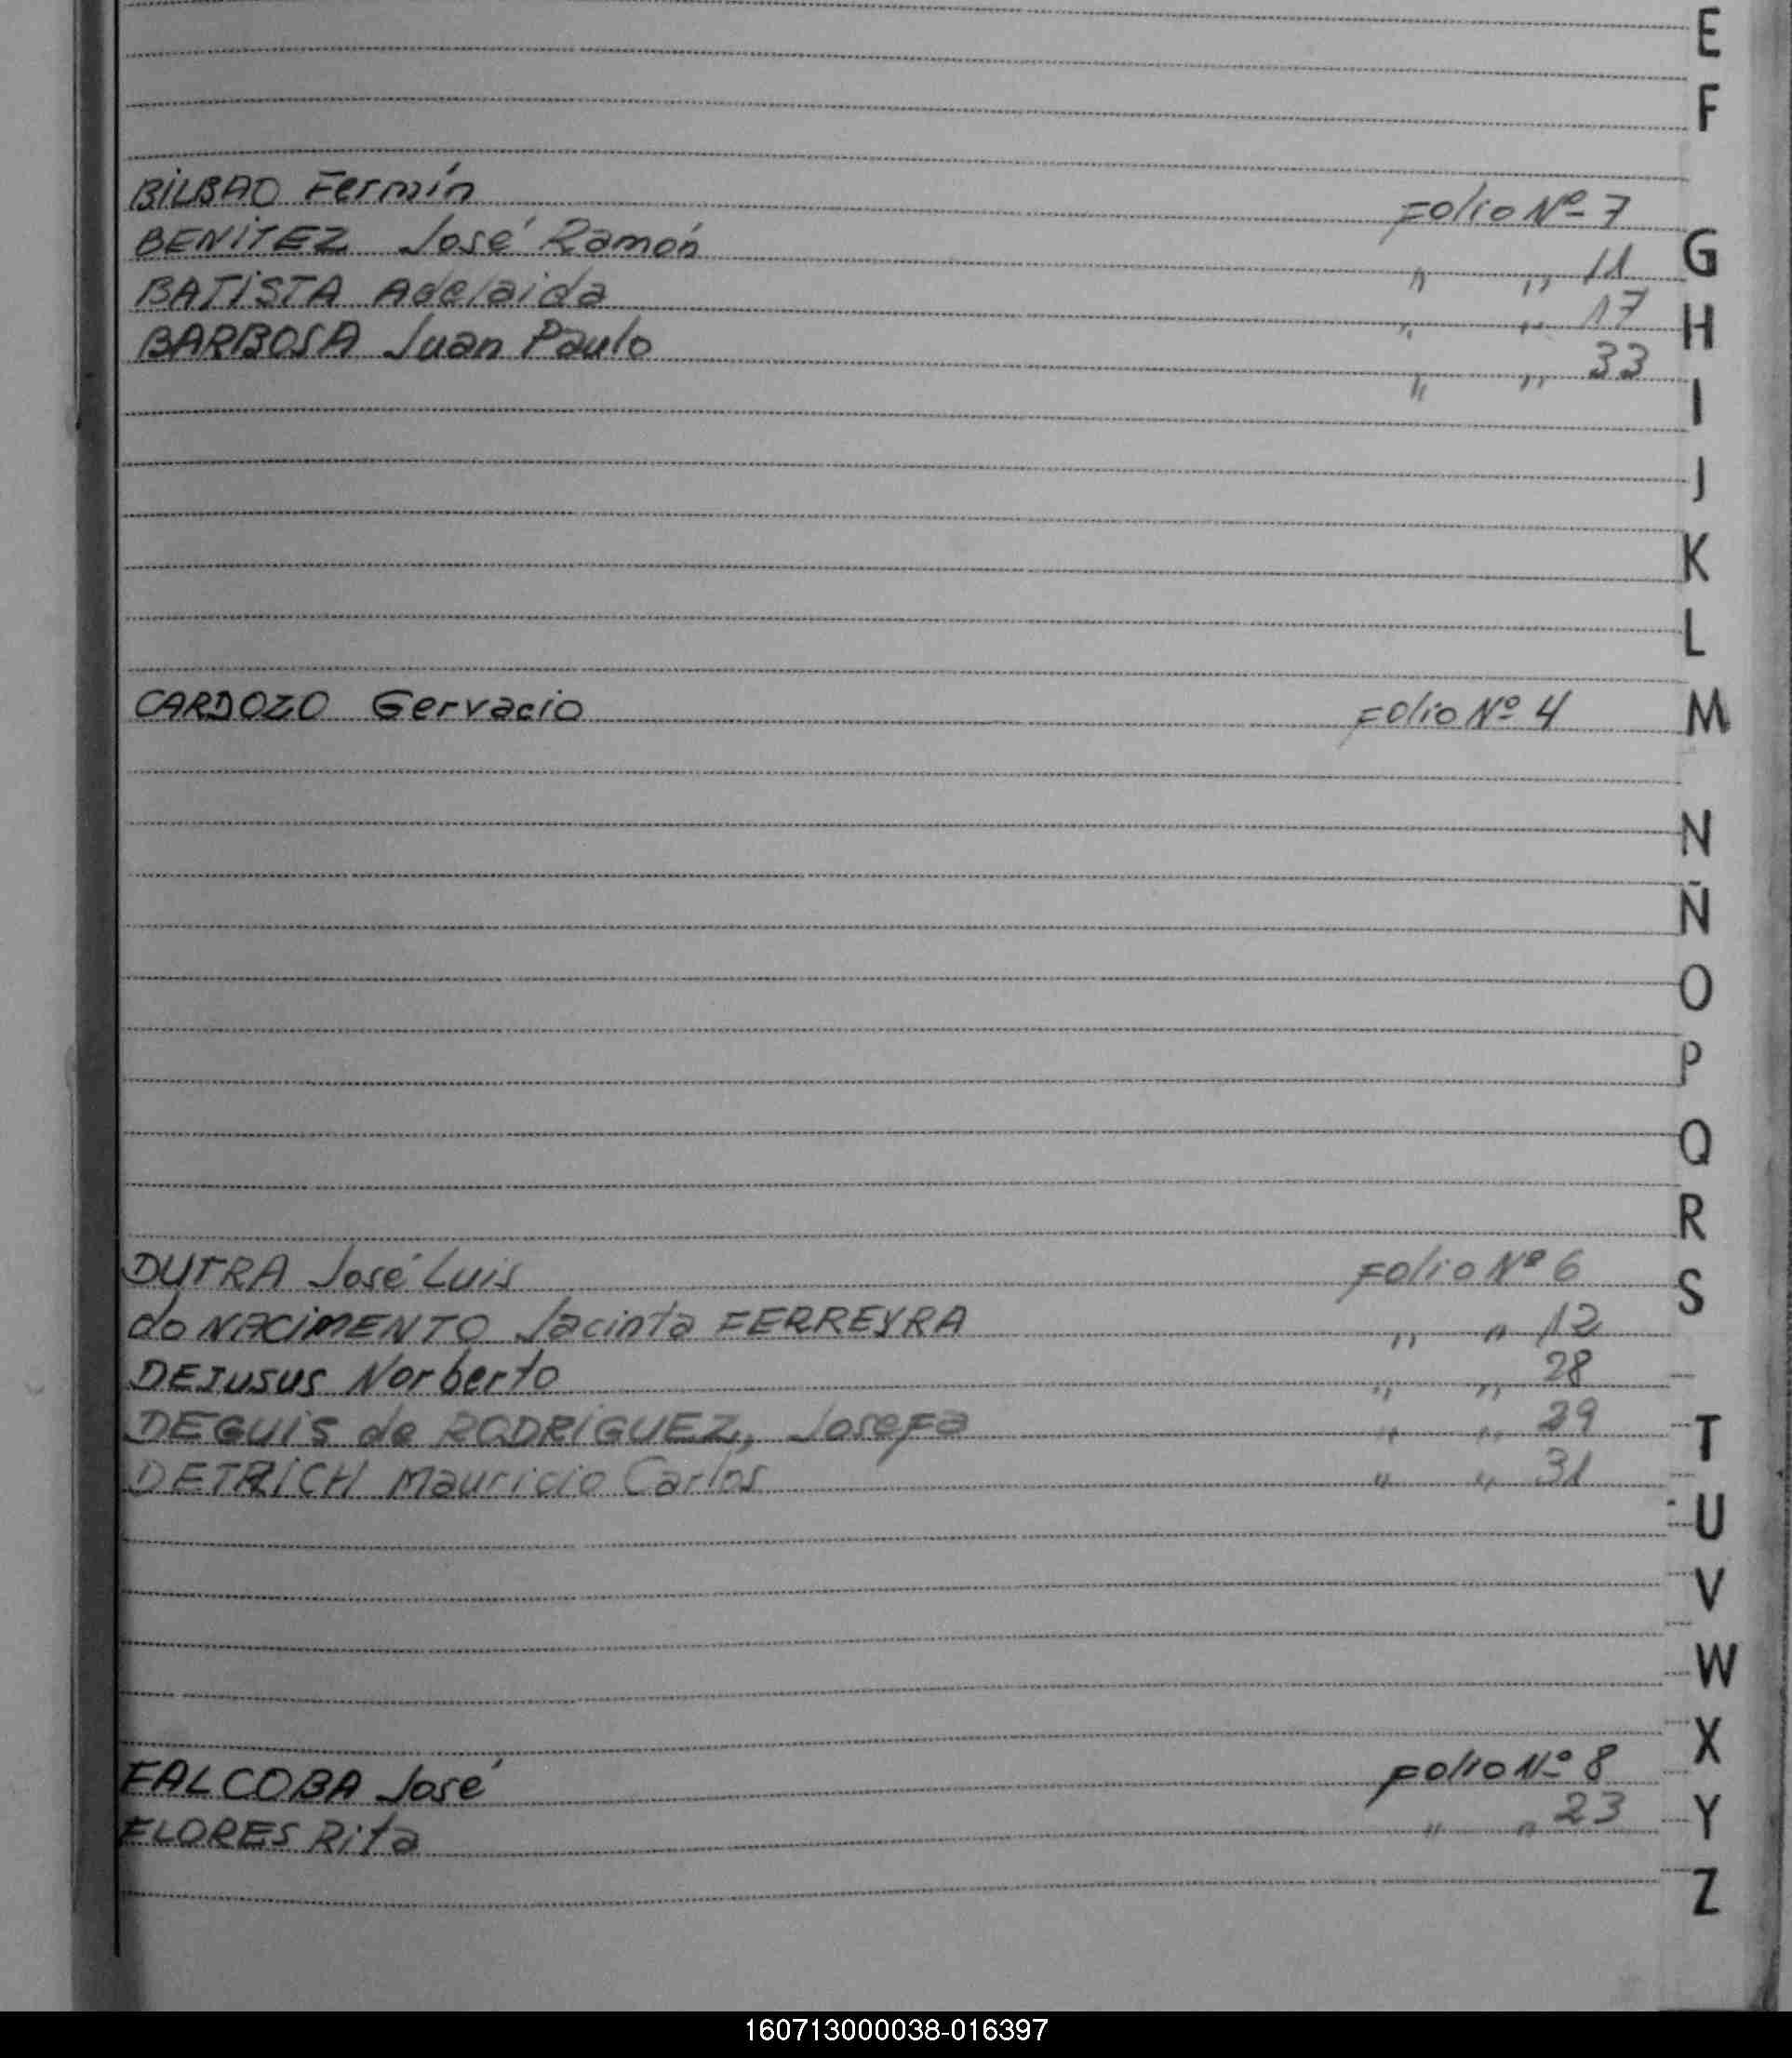 E
F
BILBAO Fermín Folio Nº 7
BENITEZ José Ramón " " 11
G
BATISTA Adelaida " " 17
H
BARBOSA Juan Paulo " " 33
I
J
K
L
CARDOZO Gervacio Folio Nº 4
M
N
Ñ
O
P
Q
R
DUTRA José Luis Folio Nº 6
S
do NACIMENTO Jacinta FERREYRA " " 12
DEJUSUS Norberto " " 28
DEGUIS de RODRIGUEZ, Josefa " " 29
T
DETRICH Mauricio Carlos " " 31
U
V
W
X
FALCOBA José Folio Nº 8
FLORES Rita " " 23
Y
Z
160713000038-016397